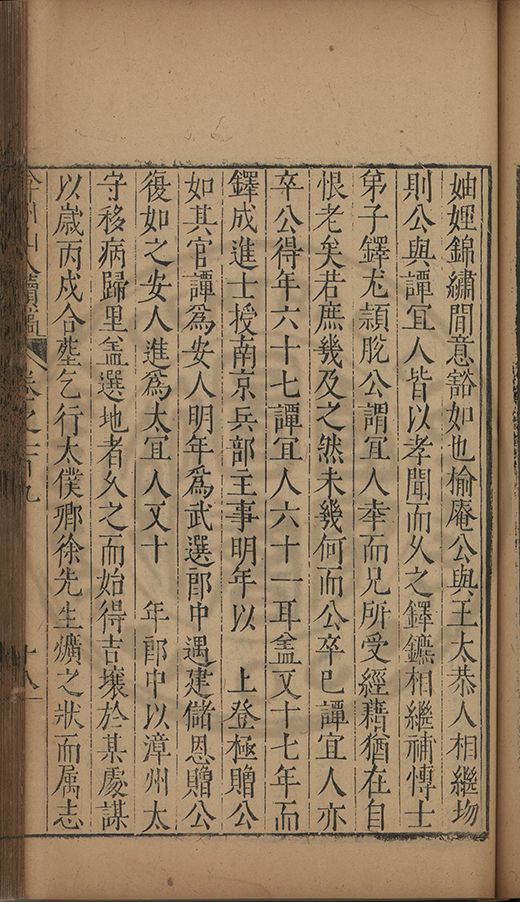 妯娌錦繡間意豁如也榆庵公與王太恭人相繼歾
則公與譚宜人皆以孝聞而久之鐸鑣相繼補博士
弟子鐸尤穎脫公謂宜人幸而兄所受經籍猶在自
恨老矣若庶幾及之然未幾何而公卒已譚宜人亦
卒公得年六十七譚宜人六十一耳盖又十七年而
鐸成進士授南京兵部主事明年以　上登極贈公
如其官譚爲安人明年爲武選郎中遇建儲恩贈公
復如之安人進爲太宜人又十　年郎中以漳州太
守移病歸里盖選地者久之而始得吉壤於某處謀
以歲丙戌合塟乞行太僕卿徐先生爌之狀而属志
弇州山人續稿　卷之一百九　十八